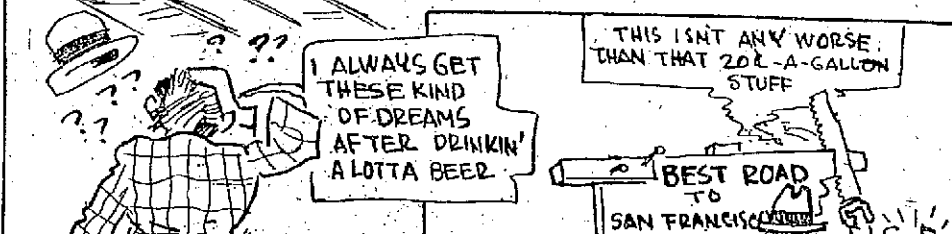 ? ??
? ?
? ?
I ALWAYS GET
THESE KIND
OF DREAMS
AFTER DRINKIN'
A LOTTA BEER
THIS ISN'T ANY WORSE
THAN THAT 20¢-A-GALLON
STUFF
BEST ROAD
TO
SAN FRANCISCO